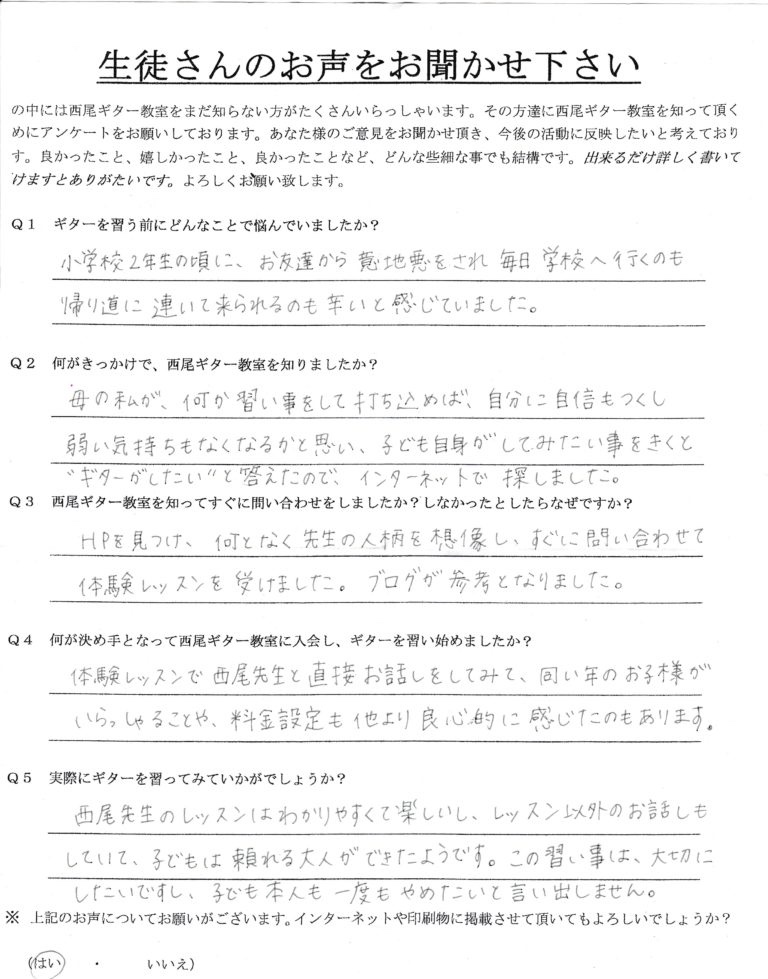 生徒さんのお声をお聞かせ下さい
の中には西尾ギター教室をまだ知らない方がたくさんいらっしゃいます。その方達に西尾ギター教室を知って頂く
めにアンケートをお願いしております。あなた様のご意見をお聞かせ頂き、今後の活動に反映したいと考えており
す。良かったこと、嬉しかったこと、良かったことなど、どんな些細な事でも結構です。出来るだけ詳しく書いて
けますとありがたいです。よろしくお願い致します。
Q1 ギターを習う前にどんなことで悩んでいましたか？
小学校2年生の頃に、お友達から意地悪をされ毎日学校へ行くのも
帰り道に連いて来られるのも辛いと感じていました。
Q2 何がきっかけで、西尾ギター教室を知りましたか？
母の私が、何か習い事をして打ち込めば、自分に自信もつくし
弱い気持ちもなくなるかと思い、子ども自身がしてみたい事をきくと
"ギターがしたい"と答えたので、インターネットで探しました。
Q3 西尾ギター教室を知ってすぐに問い合わせをしましたか？しなかったとしたらなぜですか？
HPを見つけ、何となく先生の人柄を想像し、すぐに問い合わせて
体験レッスンを受けました。ブログが参考となりました。
Q4 何が決め手となって西尾ギター教室に入会し、ギターを習い始めましたか？
体験レッスンで西尾先生と直接お話しをしてみて、同い年のお子様が
いらっしゃることや、料金設定も他より良心的に感じたのもあります。
Q5 実際にギターを習ってみていかがでしょうか？
西尾先生のレッスンはわかりやすくて楽しいし、レッスン以外のお話しも
していて、子どもは頼れる大人ができたようです。この習い事は、大切に
したいですし、子ども本人も一度もやめたいと言い出しません。
※ 上記のお声についてお願いがございます。インターネットや印刷物に掲載させて頂いてもよろしいでしょうか？
(はい ・ いいえ)